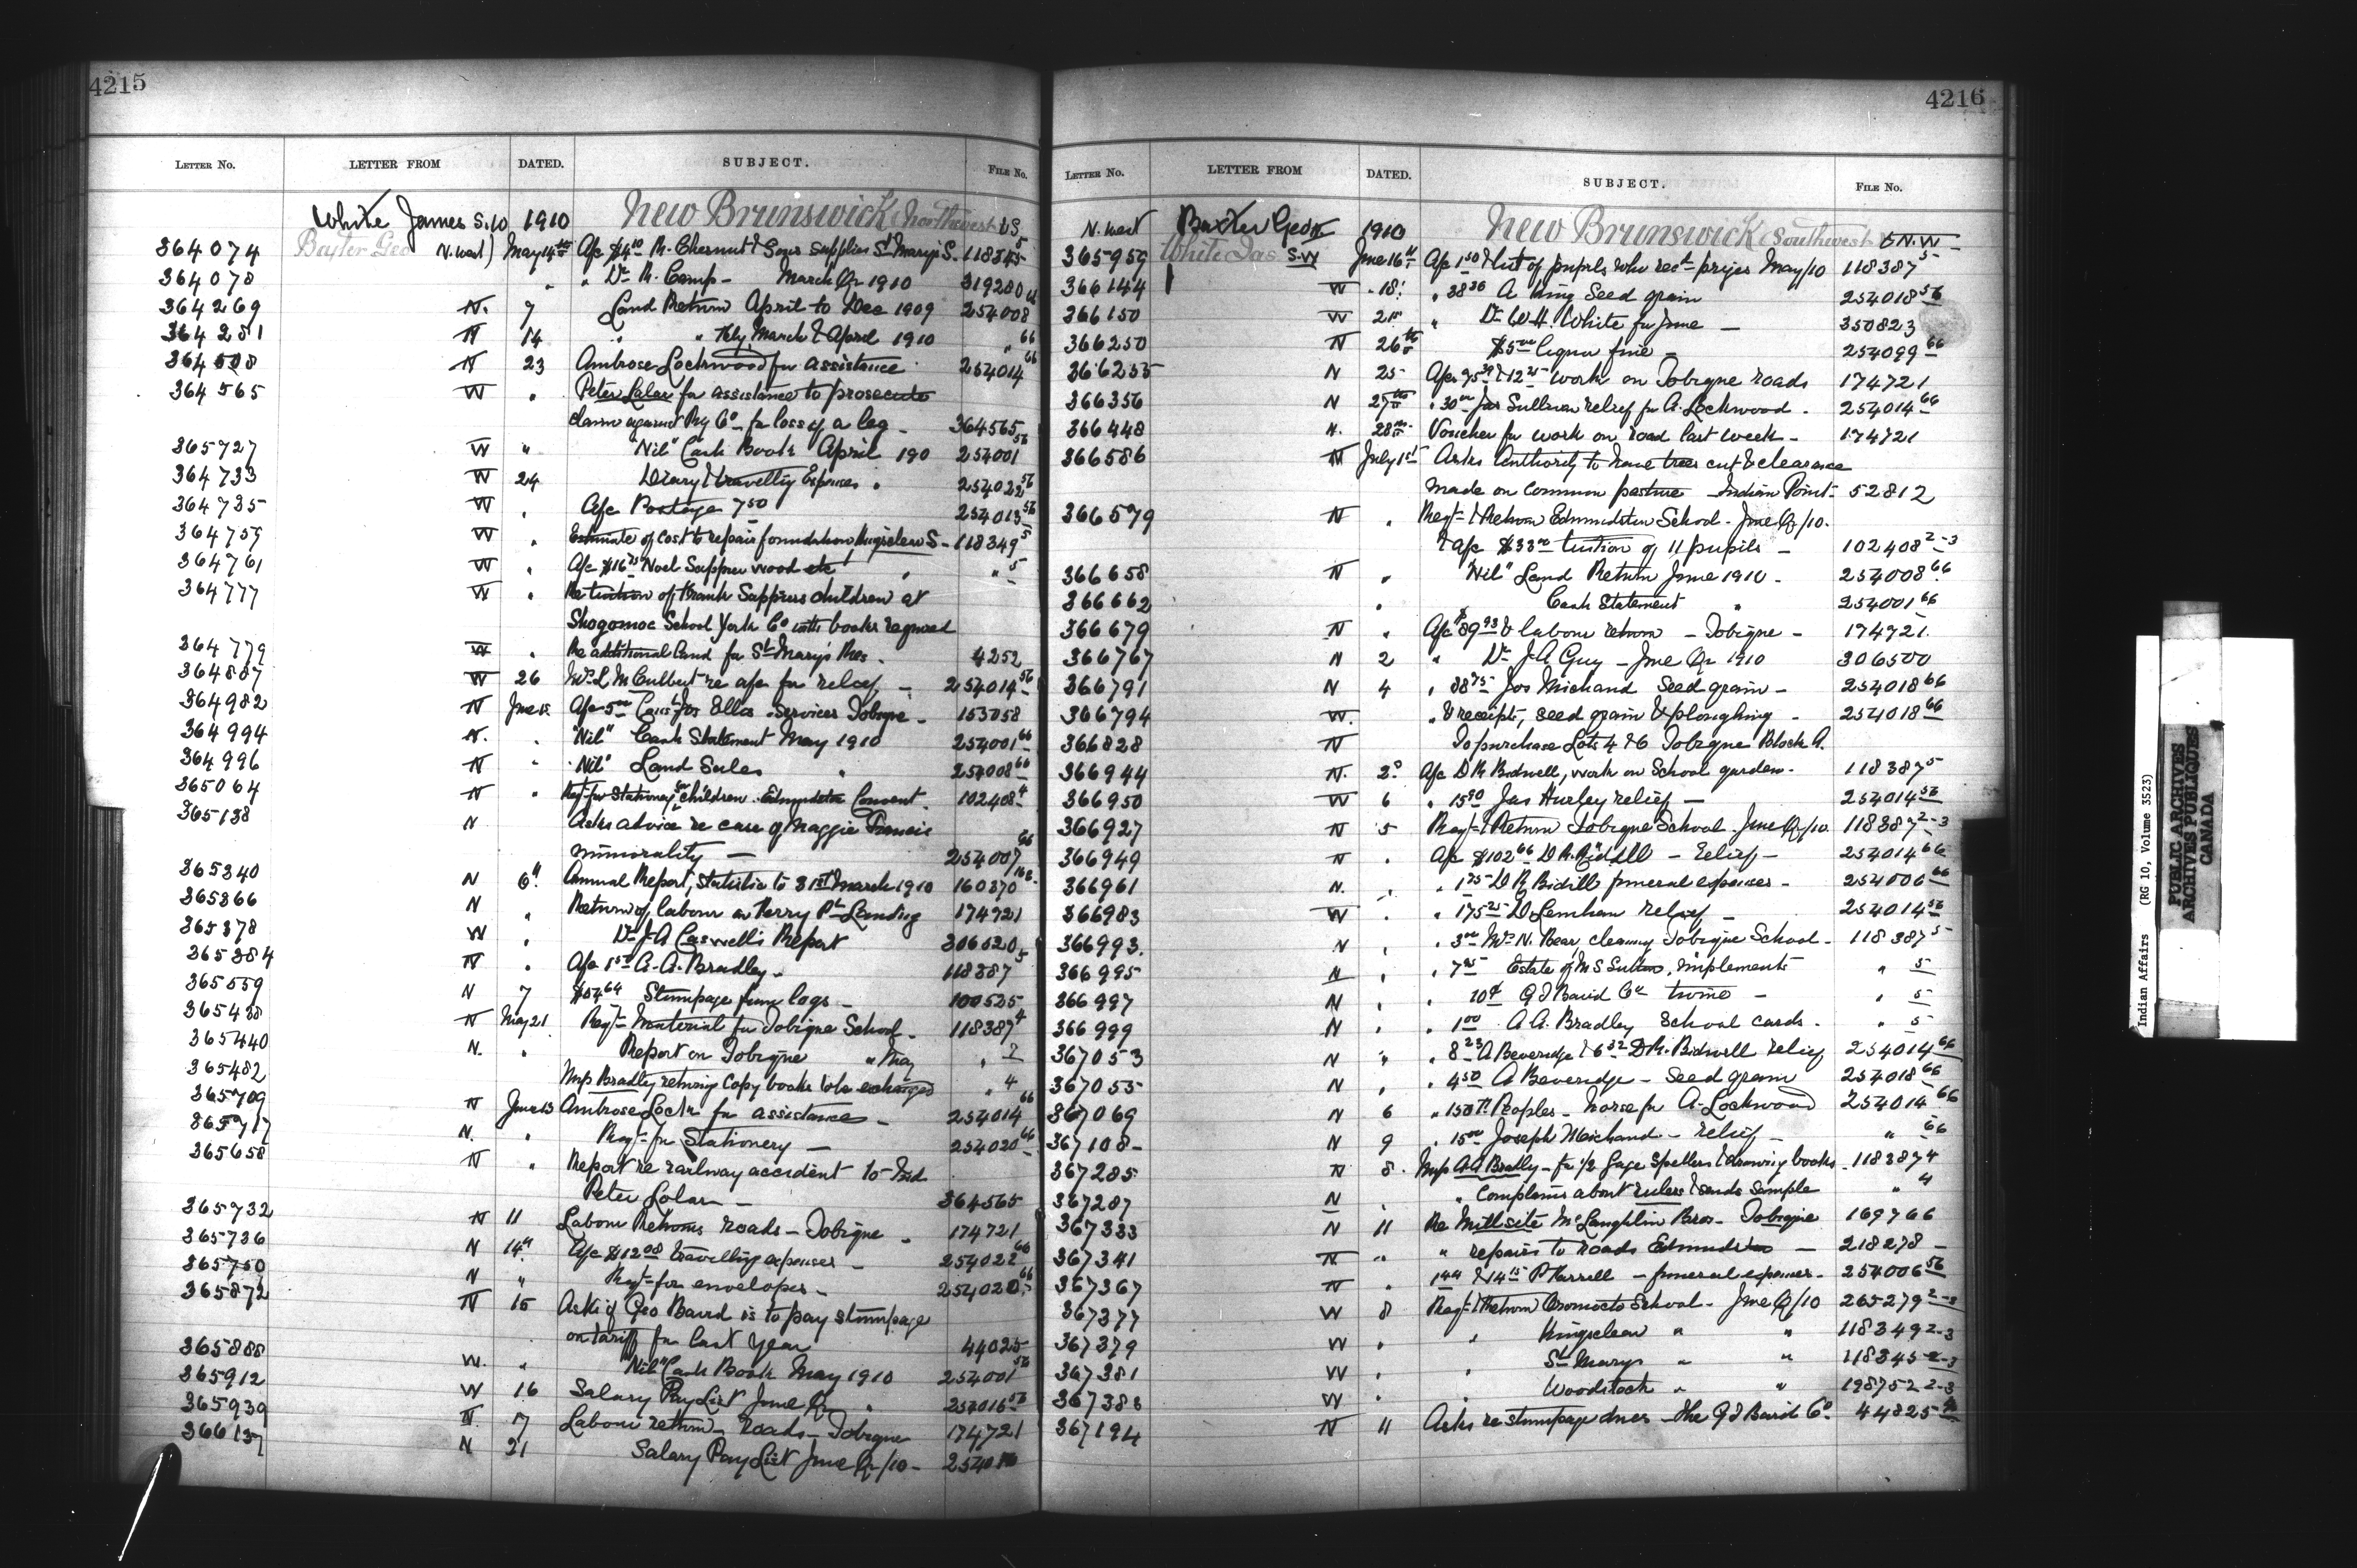 4215
LETTER NO. LETTER FROM DATED. SUBJECT. FILE NO.
White James S.W 1910 New Brunswick Northwest & S
364074 Baxter Geo N. West) May 14th A/c $4.10 R. Chesnut & Sons supplies St Mary's S. 118345 5
364078 " " Dr R. Camp - March Qr 1910 319280
364269 N. 7 Land Return April to Dec 1909 254008
364281 N 14 " " Feby March & April 1910 " 66
364508 N 23 Ambrose Lockwood for assistance 254014 66
364565 W " Peter Lolar for assistance to prosecute
claim against Ry Co for loss of a leg - 364565
365727 W " "Nil" Cash Book April 190 254001 56
364733 W 24 Diary & travelling Expenses " 254022 56
364735 W " A/c Postage 7 50 254013 56
364759 W " Estimate of cost to repair foundation Kingsclear S- 118349 5
364761 W " A/c $16 Noel Sappier wood etc " " 5
364777 W " Re tuition of Frank Sappiers children at
Shogomoc School York Co with books required
364779 W " Re additional land for St Mary's Res. 4252
364887 W 26 L McCulbert re a/c for relief - 254014 56
364982 N June A/c 5 00 Jos Ellis services Tobique - 153058
364994 N. " "Nil" Cash Statement May 1910 254001 66
364996 N " "Nil" Land Sales " 254008 66
365064 N " Reqt for Stationery for children Edmundston Convent 102408 4
365138 N Asks advice re case of Maggie Francis
immorality - 254007 66
365340 N 6" Annual Report, Statistics to 31st March 1910 160370
365366 N " Return of labour on Ferry Pt Landing 174721
365378 W " Dr J A Caswell's Report 306520
365384 N " A/c A. A. Bradley. 118387 5
365559 N 7 64 Stumpage from logs - 100535
365438 N May 21 Reqt - Material for Tobique School - 118387 4
365440 N. " Report on Tobique " May " 2
365482 Miss Bradley returning Copy books to be exchanged " 4
365709 N June 13 Ambrose Lockn for assistance - 254014 66
365717 N. " Reqt for Stationery - 254020 66
365658 N " Report re railway accident to Ind
Peter Lolar - 364565
365732 N 11 Labour Returns roads - Tobique - 174721
365736 N 14" A/c $12 08 travelling expenses - 254022 66
365750 N " Reqt for envelopes - 254020 66
365872 N 15 Asks if Geo Baird is to pay stumpage
on tariff for last year 44025
365888 W. " "Nil" Cash Book May 1910 254001 56
365912 W 16 Salary Pay List June Qr " 254016 56
365939 N. 7 Labour return - Roads - Tobique 174721
366137 N 21 Salary Pay List June Qr/10 - 2540
4216
LETTER NO. LETTER FROM DATED. SUBJECT. FILE NO.
N. West Baxter Geo 1910 New Brunswick Southwest & N.W
365959 White Jas. S.W June 16" A/c 1 50 & list of pupils who recd prizes May/10 118387 5
366144 W " 18" " 38 36 A King Seed grain 254018 56
366150 W 21 " Dr W.H. White for June - 350823
366250 N 26th $5 00 liquor fine - 254099 66
366255 N 25 A/cs 95 & 12 work on Tobique roads 174721
366356 N 27th " 30 00 Jas Sullivan relief for A. Lockwood - 254014 66
366448 N. 28th Voucher for work on road last week - 174721
366586 N July 1st Asks Authority to have trees cut & clearance
made on common pasture - Indian Point - 52812
366579 N " Reqt & Return Edmundston School - June Qr/10.
& A/c $33 00 tuition of 11 pupils - 102408 2-3
366658 N " "Nil" Land Return June 1910 - 254008 66
366662 " Cash Statement " 254001 66
366679 N " A/c $89 93 & labour return - Tobique - 174721.
366767 N 2 " Dr J A Guy - June Qr 1910 306500
366791 N 4 " 38 75 Jos Michaud Seed grain - 254018 66
366794 W. " & receipts, seed grain & ploughing - 254018 66
366828 N To purchase Lots 4 & 6 Tobique Block A.
366944 N. 2" A/c D R Bidwell, work on School garden - 118387 5
366950 W 6 " 15 90 Jas Hurley relief - 254014 56
366927 N 5 Reqt & Return Tobique School - June Qr/10. 118387 2-3
366949 N " A/c $102 66 D R - relief - 254014 66
366961 N. " " 1 75 D R funeral expenses - 254006 66
366983 W " " 175 25 D Lenihan relief - 254014 56
366993. N " " 3 00 N. Bear, cleaning Tobique School - 118387 5
366995 N " " 7 Estate of M S Sutton, implements " 5
366997 N " " 10¢ G T Baird Co twine - " 5
366999 N " " 1 00 A A. Bradley School cards - " 5
367053 N " " 8 23 A Beveridge & 6 32 D R. Bidwell relief 254014 66
367055 N " " 4 50 A Beveridge - Seed grain 254018 66
367069 N 6 " Peoples - horse for A. Lockwood 254014 66
367108 - N 9 " 15 00 Joseph Michaud - relief - " 66
367285 N 8. Miss A A Bradly - for 1/2 Gage Spellers & drawing books - 118387 4
367287 N " " Complains about rulers & sends sample " 4
367333 N 11 Re Millsite McLaughlin Bros - Tobique 169766
367341 N. " " repairs to roads Edmundston - 218278 -
367367 N " 1 & 14 15 P Farrell - funeral expenses - 254006 56
367377 W 8 Reqt & Return Oromocto School - June Qr/10 265279 2-3
367379 W " " Kingsclear " " 118349 2-3
367381 W " " St Marys " " 118345 2-3
367383 W " " Woodstock " " 198752 2-3
367194 N 11 Asks re stumpage dues - the G T Baird Co. 44825
Indian Affairs (RG 10, Volume 3523)
PUBLIC ARCHIVES
ARCHIVES PUBLIQUES
CANADA